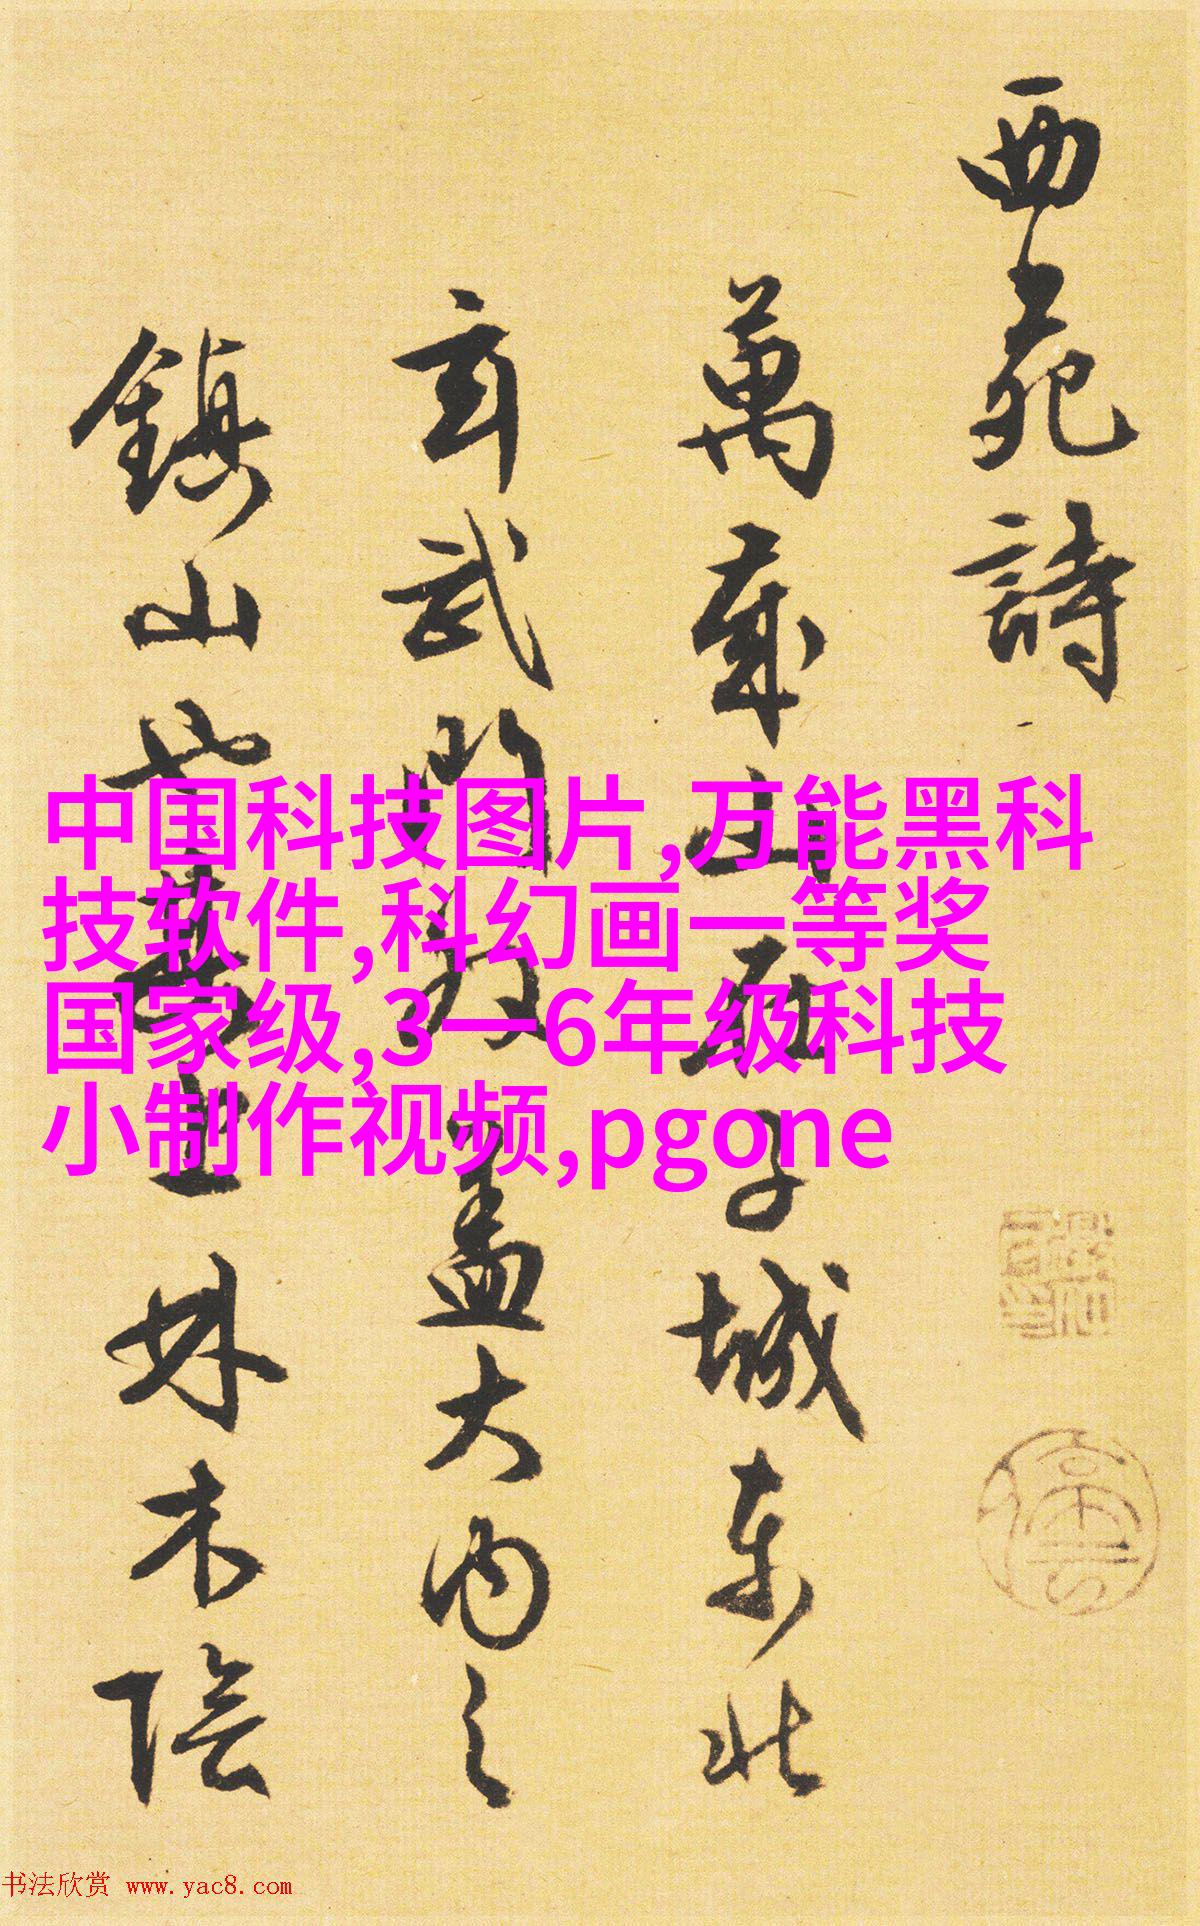 西苑詩
萬歲山在子城東北
玄武門為蓋大內之
鎮山也其上林木陰
中国科技图片,万能黑科
技软件,科幻画一等奖
国家级,3一6年级科技
小制作视频,pgone
书法欣赏 www.yac8.com